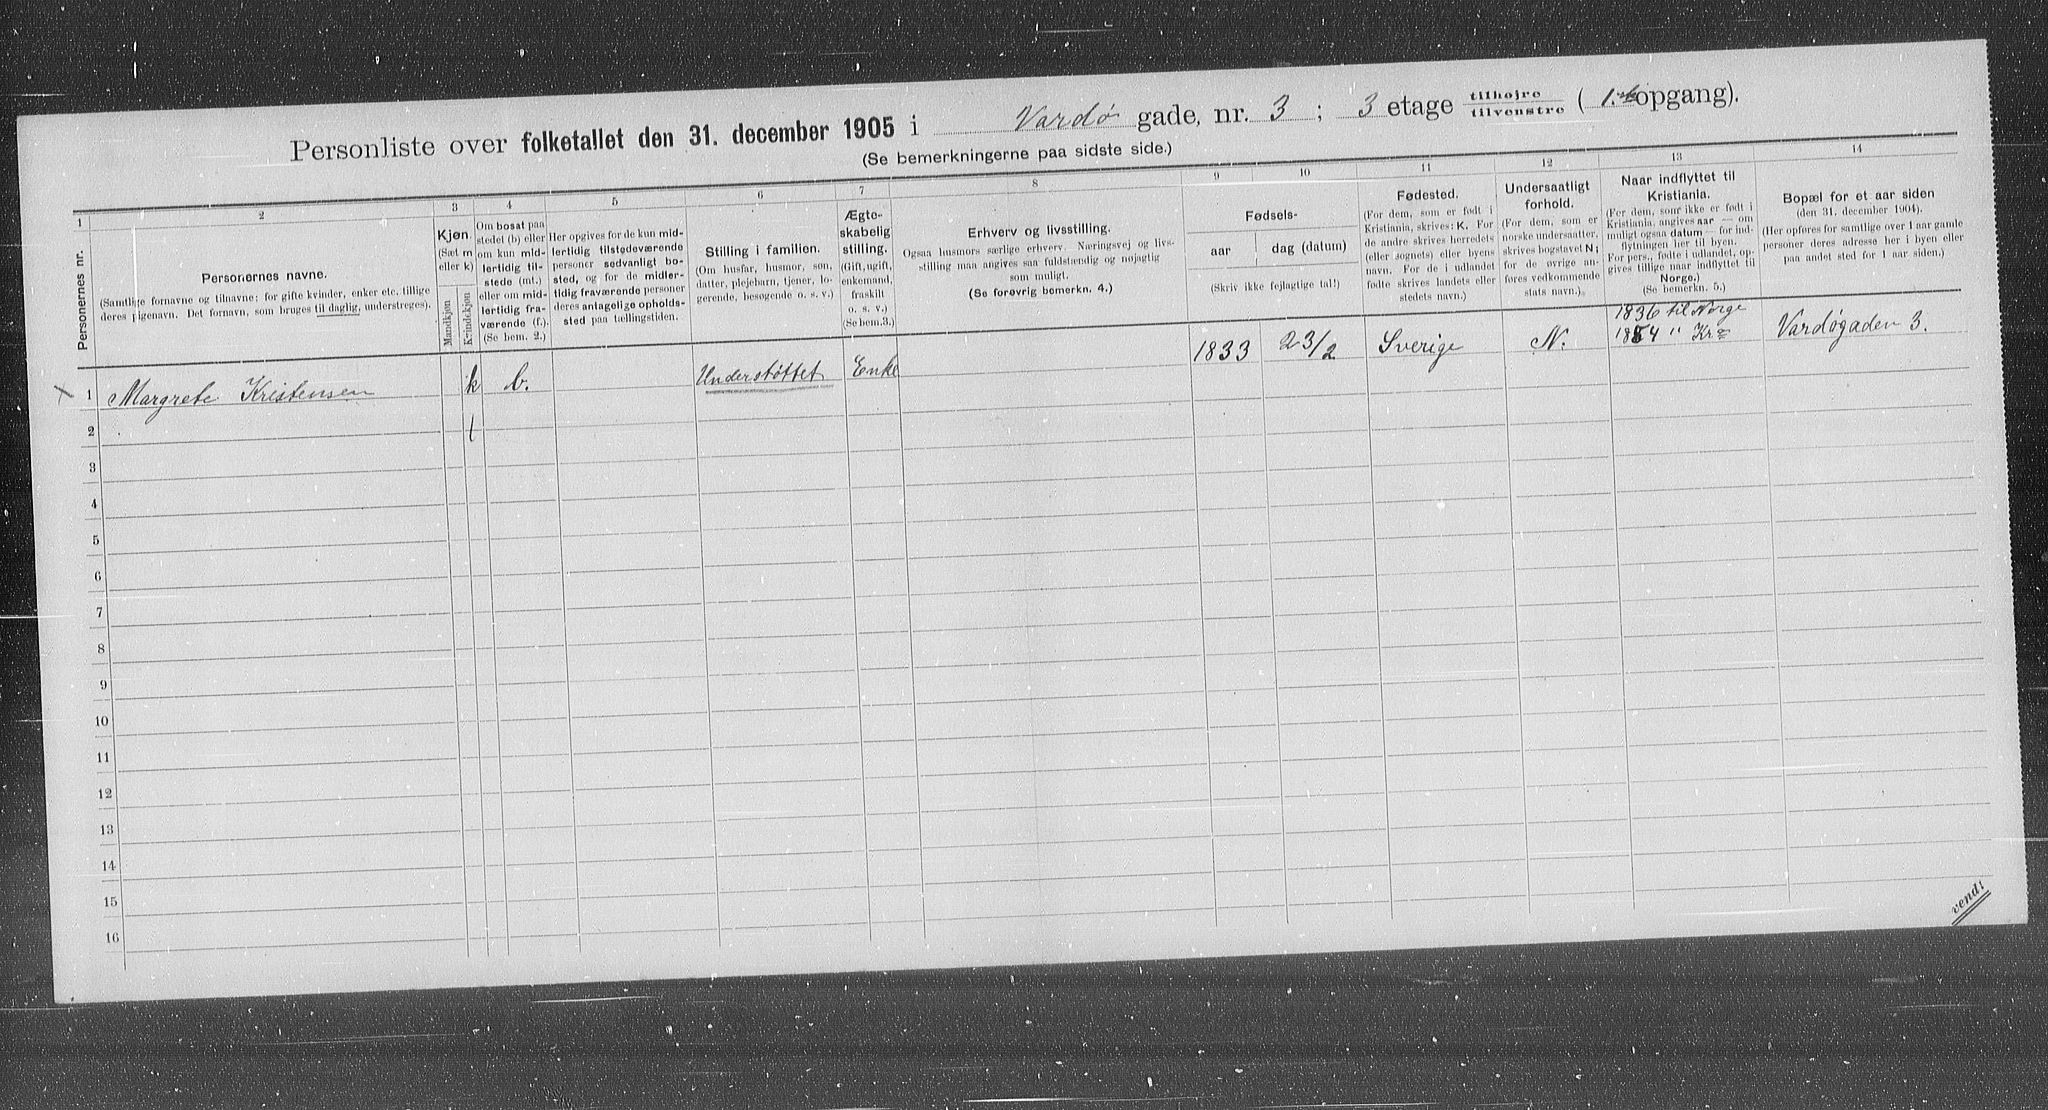 Personliste over folketallet den 31. december 1905 i Vardø gade, nr. 3 ; 3 etage tilhøjre tilvenstre ( 1. opgang).
(Se bemerkningerne paa sidste side.)
1 2 3 4 5 6 7 8 9 10 11 12 13 14
Personernes nr.
Personernes navne.
(Samtlige fornavne og tilnavne; for gifte kvinder, enker etc. tillige
deres pigenavn. Det fornavn, som bruges til daglig, understreges).
Kjøn.
(Sæt m
eller k)
Mandkjøn
Kvindekjøn
Om bosat paa
stedet (b) eller
om kun mid-
lertidig til-
stede (mt.)
eller om mid-
lertidig fra-
værende (f.)
(Se bem. 2.)
Her opgives for de kun mid-
lertidig tilstedeværende
personer sedvanligt bo-
sted, og for de midler-
tidig fraværende personer
deres antagelige opholds-
sted paa tællingstiden.
Stilling i familien.
(Om husfar, husmor, søn,
datter, plejebarn, tjener, lo-
gerende, besøgende o. s. v.)
Ægte-
skabelig
stilling.
(Gift, ugift,
enkemand,
fraskilt
o. s. v.)
(Se bem.3.)
Erhverv og livsstilling.
Ogsaa husmors særlige erhverv. Næringsvej og livs-
stilling maa angives saa fuldstændig og nøjagtig
som muligt.
(Se forøvrig bemerkn. 4.)
Fødsels-
aar
dag (datum)
(Skriv ikke fejlagtige tal!)
Fødested.
(For dem, som er født i
Kristiania, skrives: K. For
de andre skrives herredets
(eller sognets) eller byens
navn. For de i udlandet
fødte skrives landets eller
stedets navn.)
Undersaatligt
forhold.
(For dem, som er
norske undersaatter,
skrives bogstavet N;
for de øvrige an-
føres vedkommende
stats navn.)
Naar indflyttet til
Kristiania.
(For dem, som ikke er født i
Kristiania, angives aar — om
muligt ogsaa datum — for ind-
flytningen her til byen.
For pers., fødte i udlandet, op-
gives tillige naar indflyttet til
Norge.)
(Se bemerkn. 5.)
Bopæl for et aar siden
(den 31. december 1904).
(Her opføres for samtlige over 1 aar gamle
personer deres adresse her i byen eller
paa andet sted for 1 aar siden.)
1836 til Norge
1 Margrete Kristensen k b. Understøttet Enke 1833 23/2 Sverige N. 1854 " Kra Vardøgaden 3.
2
3
4
5
6
7
8
9
10
11
12
13
14
15
16
vend!